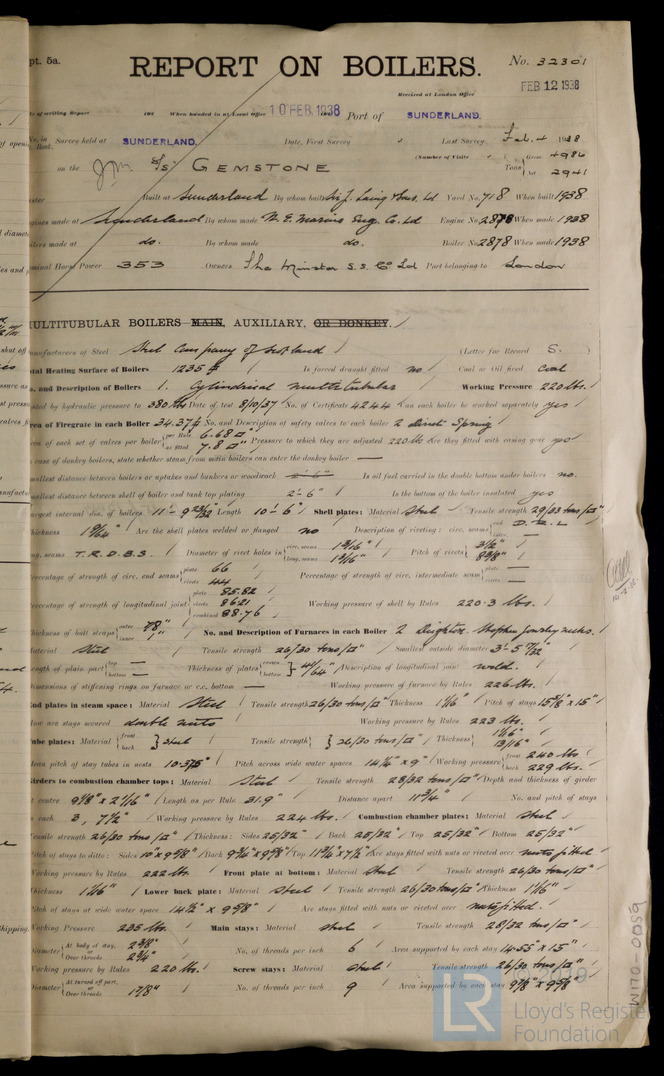 pt. 5a.
REPORT ON BOILERS.
No. 32301
Received at London Office
FEB 12 1938
te of writing Report 193 When handed in at Local Office 10 FEB 1938 Port of SUNDERLAND.
No. in Survey held at SUNDERLAND. Date, First Survey Last Survey Feb. 4 1938
(Number of Visits Gross 4986
on the S/S GEMSTONE Tons Net 2941
Built at Sunderland By whom built Sir J. Laing & Sons. Ld Yard No. 718 When built 1938
gines made at Sunderland By whom made N. E. Marine Eng. Co. Ld Engine No. 2878 When made 1938
ilers made at do. By whom made do. Boiler No. 2878 When made 1938
minal Horse Power 353 Owners The Minster S.S. Co Ld Port belonging to London
MULTITUBULAR BOILERS MAIN, AUXILIARY, OR DONKEY.
anufacturers of Steel Steel Company of Scotland (Letter for Record S. )
tal Heating Surface of Boilers 1235 Is forced draught fitted no Coal or Oil fired Coal
o. and Description of Boilers 1. Cylindrical multitubular Working Pressure 220 lbs.
sted by hydraulic pressure to 380 lbs Date of test 8/10/37 No. of Certificate 4244 Can each boiler be worked separately yes
rea of Firegrate in each Boiler 34.37 No. and Description of safety valves to each boiler 2 Direct Spring
rea of each set of valves per boiler per Rule 6.68 as fitted 7.8 Pressure to which they are adjusted 220 lbs Are they fitted with easing gear yes
case of donkey boilers, state whether steam from main boilers can enter the donkey boiler —
mallest distance between boilers or uptakes and bunkers or woodwork 2'-6" Is oil fuel carried in the double bottom under boilers no.
mallest distance between shell of boiler and tank top plating 2'-6" Is the bottom of the boiler insulated yes
argest internal dia. of boilers 11'-9 23/32 Length 10'-6" Shell plates: Material Steel Tensile strength 29/33 tons/□"
hickness 1 9/64" Are the shell plates welded or flanged no Description of riveting: circ. seams end D.R.L
ng. seams T.R.D.B.S. Diameter of rivet holes in circ. seams 1 3/16" long. seams 1 3/16" Pitch of rivets 3 1/2" 8 3/8"
ercentage of strength of circ. end seams plate 66 rivets 44 Percentage of strength of circ. intermediate seam plate — rivets —
ercentage of strength of longitudinal joint plate 85.82 rivets 86.21 combined 88.76 Working pressure of shell by Rules 220.3 lbs.
hickness of butt straps outer 7/8" inner 1" No. and Description of Furnaces in each Boiler 2 Deighton.
aterial Steel Tensile strength 26/30 tons/□" Smallest outside diameter 3'-5 7/32"
ength of plain part top — bottom — Thickness of plates crown bottom 41/64" Description of longitudinal joint weld.
imensions of stiffening rings on furnace or c.c. bottom — Working pressure of furnace by Rules 226 lbs.
nd plates in steam space: Material Steel Tensile strength 26/30 tons/□" Thickness 1 1/16" Pitch of stays 15 5/8" x 15"
ow are stays secured double nuts Working pressure by Rules 223 lbs.
ube plates: Material front back Steel Tensile strength 26/30 tons/□" Thickness 1 1/16" 13/16"
ean pitch of stay tubes in nests 10.375" Pitch across wide water spaces 14 1/2" x 9" Working pressure front 240 lbs back 229 lbs.
irders to combustion chamber tops: Material Steel Tensile strength 28/32 tons/□" Depth and thickness of girder
centre 9 1/8" x 2 1/16" Length as per Rule 31.9" Distance apart 11 3/4" No. and pitch of stays
each 3, 7 1/2" Working pressure by Rules 224 lbs. Combustion chamber plates: Material Steel
ensile strength 26/30 tons/□" Thickness: Sides 25/32" Back 25/32" Top 25/32" Bottom 25/32"
itch of stays to ditto: Sides 10" x 9 5/8" Back 9 3/4" x 9 5/8" Top 11 3/4" x 7 1/2" Are stays fitted with nuts or riveted over nuts fitted
orking pressure by Rules 222 lbs. Front plate at bottom: Material Steel Tensile strength 26/30 tons/□"
hickness 1 1/16" Lower back plate: Material Steel Tensile strength 26/30 tons/□" Thickness 1 1/16"
itch of stays at wide water space 14 1/2" x 9 5/8" Are stays fitted with nuts or riveted over nuts fitted.
orking Pressure 235 lbs. Main stays: Material Steel Tensile strength 28/32 tons/□"
iameter At body of stay, or Over threads 2 3/8" 2 3/4" No. of threads per inch 6 Area supported by each stay 14.55" x 15"
orking pressure by Rules 220 lbs. Screw stays: Material Steel Tensile strength 26/30 tons/□"
iameter At turned off part, or Over threads 1 7/8" No. of threads per inch 9 Area supported by each stay 9 7/8" x 9 5/8"
W170-0059
LR
Lloyd's Register
Foundation